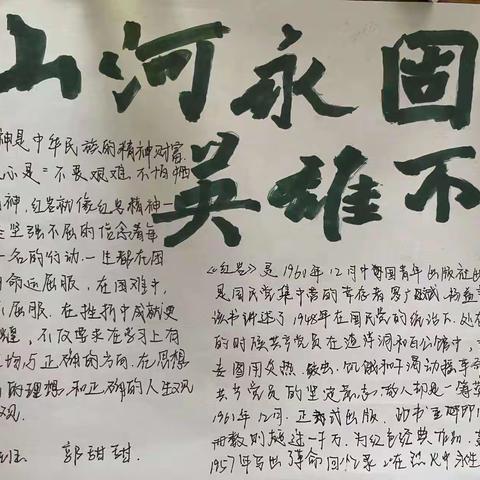 山河永固
英雄不
神是中华民族的精神财富
心是"不畏艰难、不怕牺
神,红岩就像红岩精神一
坚强不屈的信念青年
一名的行动一生都在困
命运屈服,在困难中,
屈服.在挫折中成就更
,不仅要求在学习上有
与正确的方向.在思想
的理想和正确的人生观
观.
郭甜甜.
《红岩》是1960年12月中国青年出版社出
是国民党集中营的幸存者罗广斌、杨益
该书讲述了1948年在国民党的统治下,处在
的时候共产党员在渣滓洞和白公馆中,
共产党员的坚定意志,敌人却是一筹莫
1961年12月.正式出版.
册数的超过一千万.为红色经典作品.
1957年写出了革命回忆录《在烈火中永生